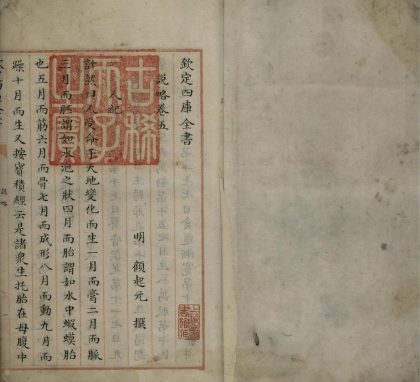 欽定四庫全書
說略卷五
明 顧起元 撰
人紀
計然曰人受命于天地變化而生一月而膏二月而脈
三月而胚謂如水泡之狀四月而胎謂如水中蝦蟆胎
也五月而筋六月而骨七月而成形八月而動九月而
躁十月而生又按寶積經云是諸衆生托胎在母腹中
古稀天子之寶